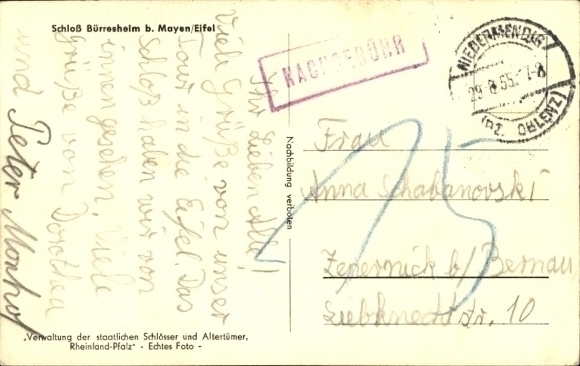 Schloß Bürresheim b. Mayen/Eifel
Ihr Lieben All!
Viele Grüße von unser
Tour in die Eifel. Das
Schloß haben wir von
innen gesehen. Viele
Grüße von Dorothea
und Peter Monhof
"Verwaltung der staatlichen Schlösser und Altertümer,
Rheinland-Pfalz" - Echtes Foto -
Nachbildung verboten
NACHGEBÜHR
NIEDERMENDIG
29.8.55. 7-8
15
Frau
Anna Schabanovski
Zepernick b/ Bernau
Liebknechtstr. 10